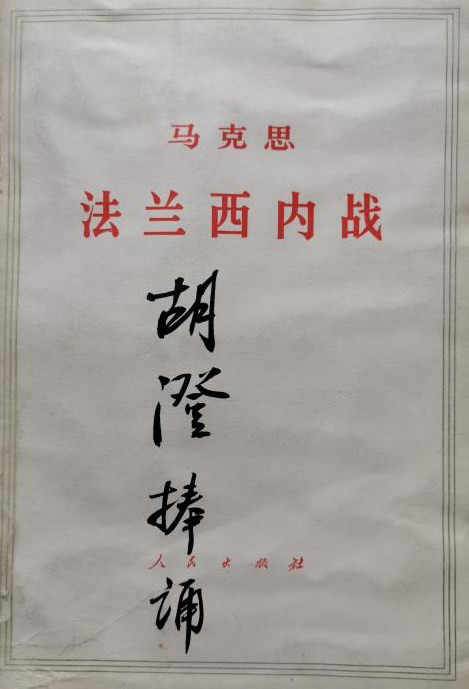 马克思
法兰西内战
胡澄捧诵
人民出版社